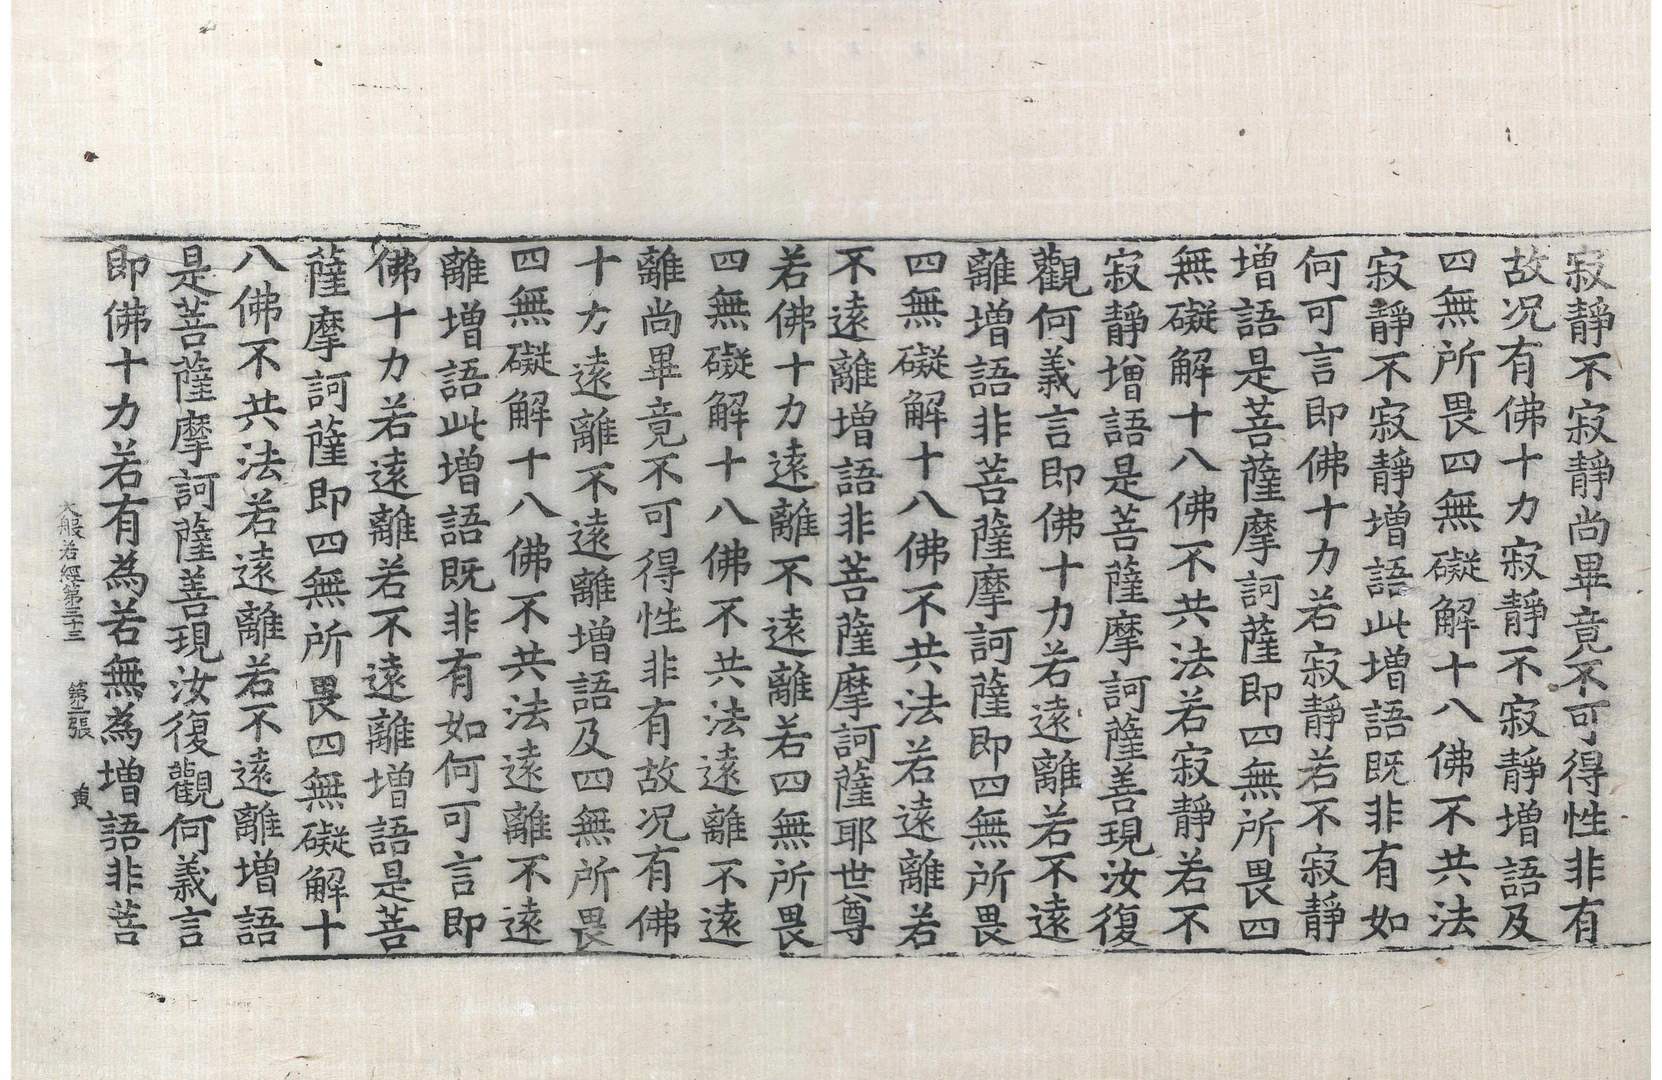 寂靜不寂靜尚畢竟不可得性非有
故况有佛十力寂靜不寂靜增語及
四無所畏四無礙解十八佛不共法
寂靜不寂靜增語此增語既非有如
何可言即佛十力若寂靜若不寂靜
增語是菩薩摩訶薩即四無所畏四
無礙解十八佛不共法若寂靜若不
寂靜增語是菩薩摩訶薩善現汝復
觀何義言即佛十力若遠離若不遠
離增語非菩薩摩訶薩即四無所畏
四無礙解十八佛不共法若遠離若
不遠離增語非菩薩摩訶薩耶世尊
若佛十力遠離不遠離若四無所畏
四無礙解十八佛不共法遠離不遠
離尚畢竟不可得性非有故况有佛
十力遠離不遠離增語及四無所畏
四無礙解十八佛不共法遠離不遠
離增語此增語既非有如何可言即
佛十力若遠離若不遠離增語是菩
薩摩訶薩即四無所畏四無礙解十
八佛不共法若遠離若不遠離增語
是菩薩摩訶薩善現汝復觀何義言
即佛十力若有為若無為增語非菩
大般若經第三十三 第二張 黃